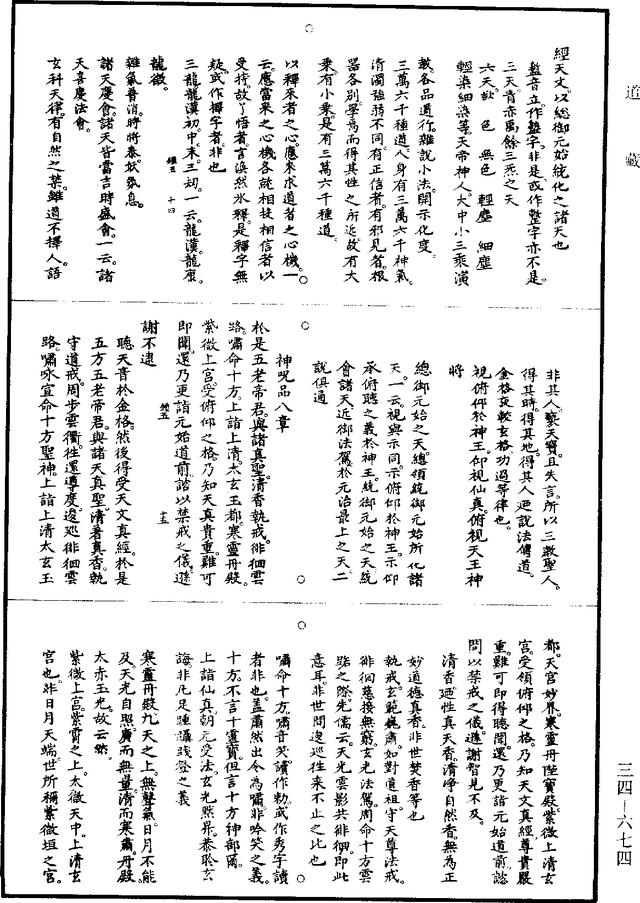 道藏
經天文以總御元始統化之諸天也
盤音立作整字非是或作整字亦不是
三天青赤禹餘三炁之天
六天欲色無色輕塵細塵
輕染細染等天帝神人大中小三乘演
教各品道行雖說小法開示化度
三萬六千種道人身有三萬六千神氣
清濁強弱不同有正信者有邪見者根
器各別學焉而得其性之所近故有大
乘有小乘是有三萬六千種道
以釋來者之心應來求道者之心機一
云應當來之心機各就相投相信者以
受持故丫悟者言渙然氷釋是釋字無
疑或作擇字者非也
三龍龍漢初中末三劫一云龍漢龍康
龍微
雜氣普消時將泰妖氛息
諸天慶會諸天皆當吉時盛會一云諸
天喜慶法會
玄科天律有自然之禁雖道不擇人語
非其人褻天寶且失言所以三教聖人
得其時得其地得其人迺說法傳道
金格玄較玄格功過等律也
視俯仰於神王仰視仙真俯視天王神
將
總御元始之天總領統御元始所化諸
天一云視與示同示俯仰於神王示仰
承俯聽之義於神王統御元始之天統
會諸天近御法駕於元始最上之天二
說俱通
神呪品八章
於是五老帝君與諸真聖清香執戒徘徊雲
路嘯命十方上詣上清太玄玉都寒靈丹殿
紫微上宮受俯仰之格乃知天真貴重難可
即聞還乃更詣元始道前諮以禁戒之儀遜
謝不逮
聽天音於金格然後得受天文真經於是
五方五老帝君與諸天真聖清著真香執
守道戒周步雲衢往還導度逡巡徘徊雲
路嘯咏宣命十方聖神上詣上清太玄玉
都天宮妙界寒靈丹陛寶殿紫微上清玄
宮受領俯仰之格乃知天文真經尊貴嚴
重難可即得聽聞還乃更詣元始道前諮
問以禁戒之儀遜謝智見不及
清香迺性真天香清淨自然香無為正
妙道德真香非世焚香等也
執戒玄範巍肅如對道祖守天尊法戒
徘徊慈接無窮玄光法駕周命十方雲
路之際先儒云天光雲影共徘徊即此
意耳非世間逡巡往來不止之比也
嘯命十方嘯音笑讀作勅或作秀字讀
者非也蓋肅然出令為嘯非吟笑之義
十方不言十靈寶但言十方神部爾
上詣仙真朝元受法玄光煕昇恭聆玄
誨非凡足踵躡殘登之義
寒靈丹殿九天之上無聲氣日月不能
及天光自照廣而無量清而寒肅丹殿
太赤玉光故云然
紫微上宮紫霄之上太微天中上清玄
宮也非日月天端世所稱紫微垣之宮
三四—六七四